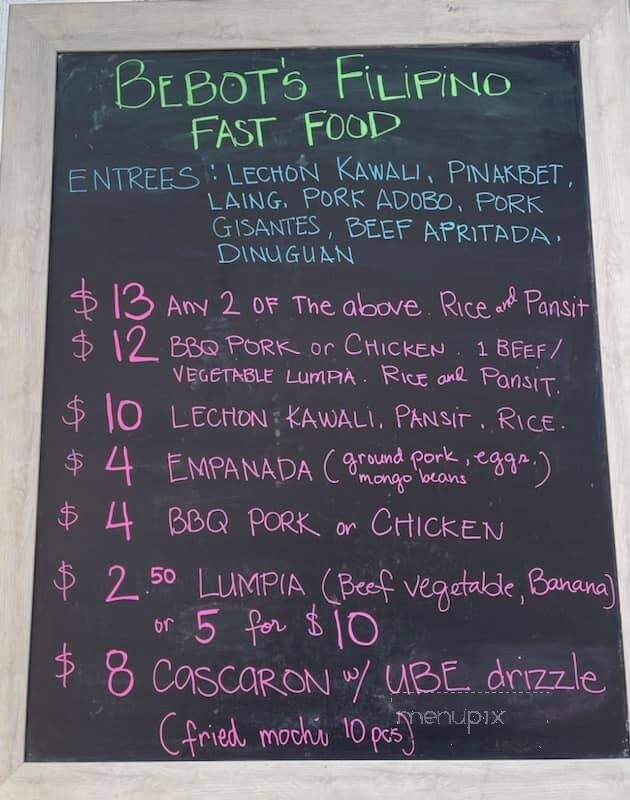 BEBOT'S FILIPINO
FAST FOOD
ENTREES : LECHON KAWALI, PINAKBET,
LAING, PORK ADOBO, PORK
GISANTES, BEEF APRITADA,
DINUGUAN
$ 13 ANY 2 OF The above. Rice and Pansit
$ 12 BBQ PORK or CHICKEN. 1 BEEF/
VEGETABLE LUMPIA. RICE and PANSIT.
$ 10 LECHON KAWALI, PANSIT, RICE.
$ 4 EMPANADA (ground pork, eggs.)
mongo beans
$ 4 BBQ PORK or CHICKEN
$ 2.50 LUMPIA (Beef vegetable, Banana)
or 5 for $10
$ 8 CASCARON w/ UBE drizzle
menupix
(fried mochi 10 pcs)